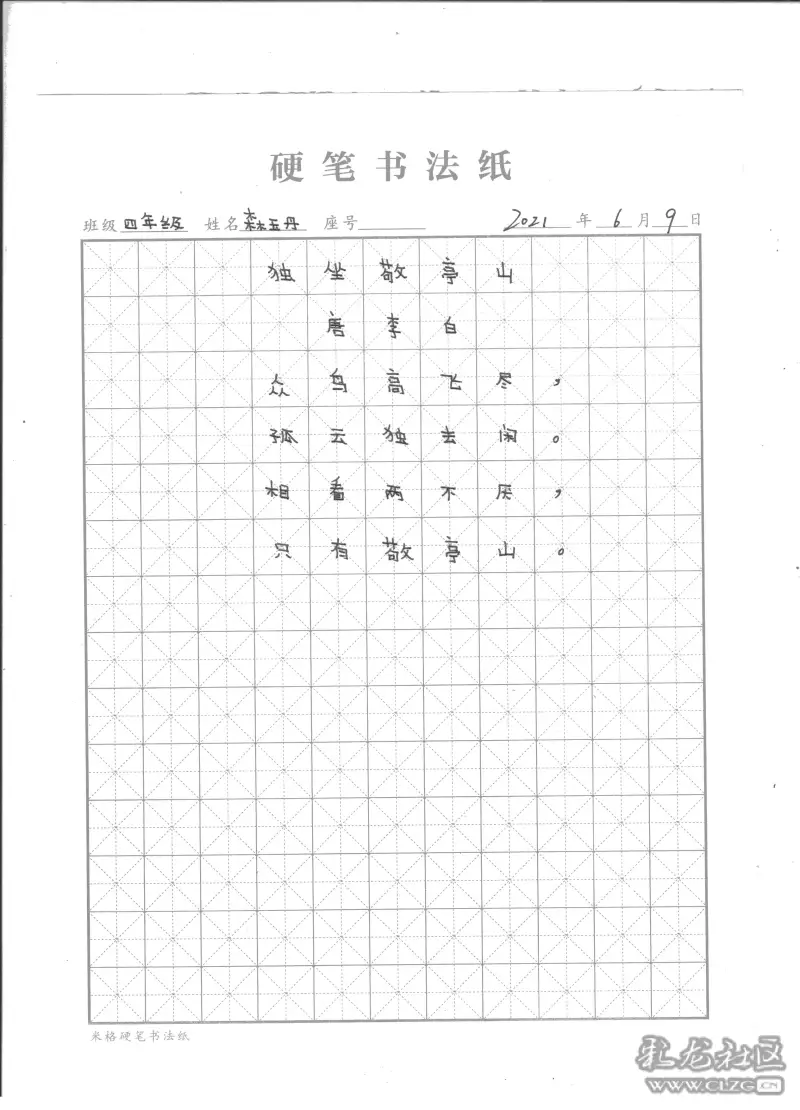 硬笔书法纸
班级 四年级 姓名 森玉丹 座号 2021 年 6 月 9 日
独坐敬亭山
唐李白
众鸟高飞尽，
孤云独去闲。
相看两不厌，
只有敬亭山。
米格硬笔书法纸
彩龙社区
www.CLZG.CN